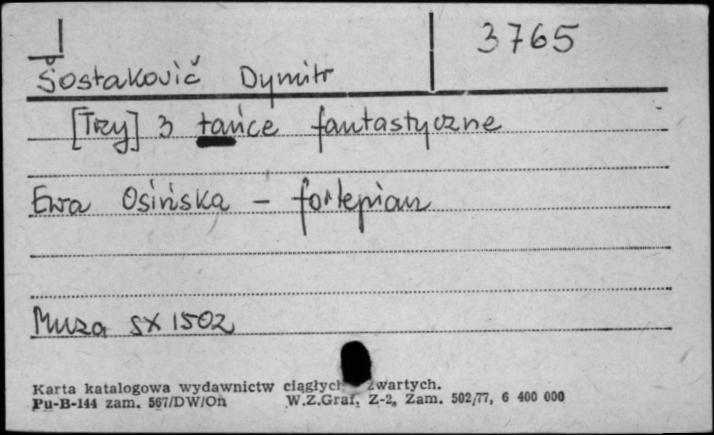 3765
Šostakovič Dymitr
[Trzy] 3 tańce fantastyczne
Ewa Osińska - fortepian
Muza SX 1502
Karta katalogowa wydawnictw ciągłych zwartych.
Pu-B-144 zam. 567/DW/On W.Z.Graf. Z-2, Zam. 502/77, 6 400 000